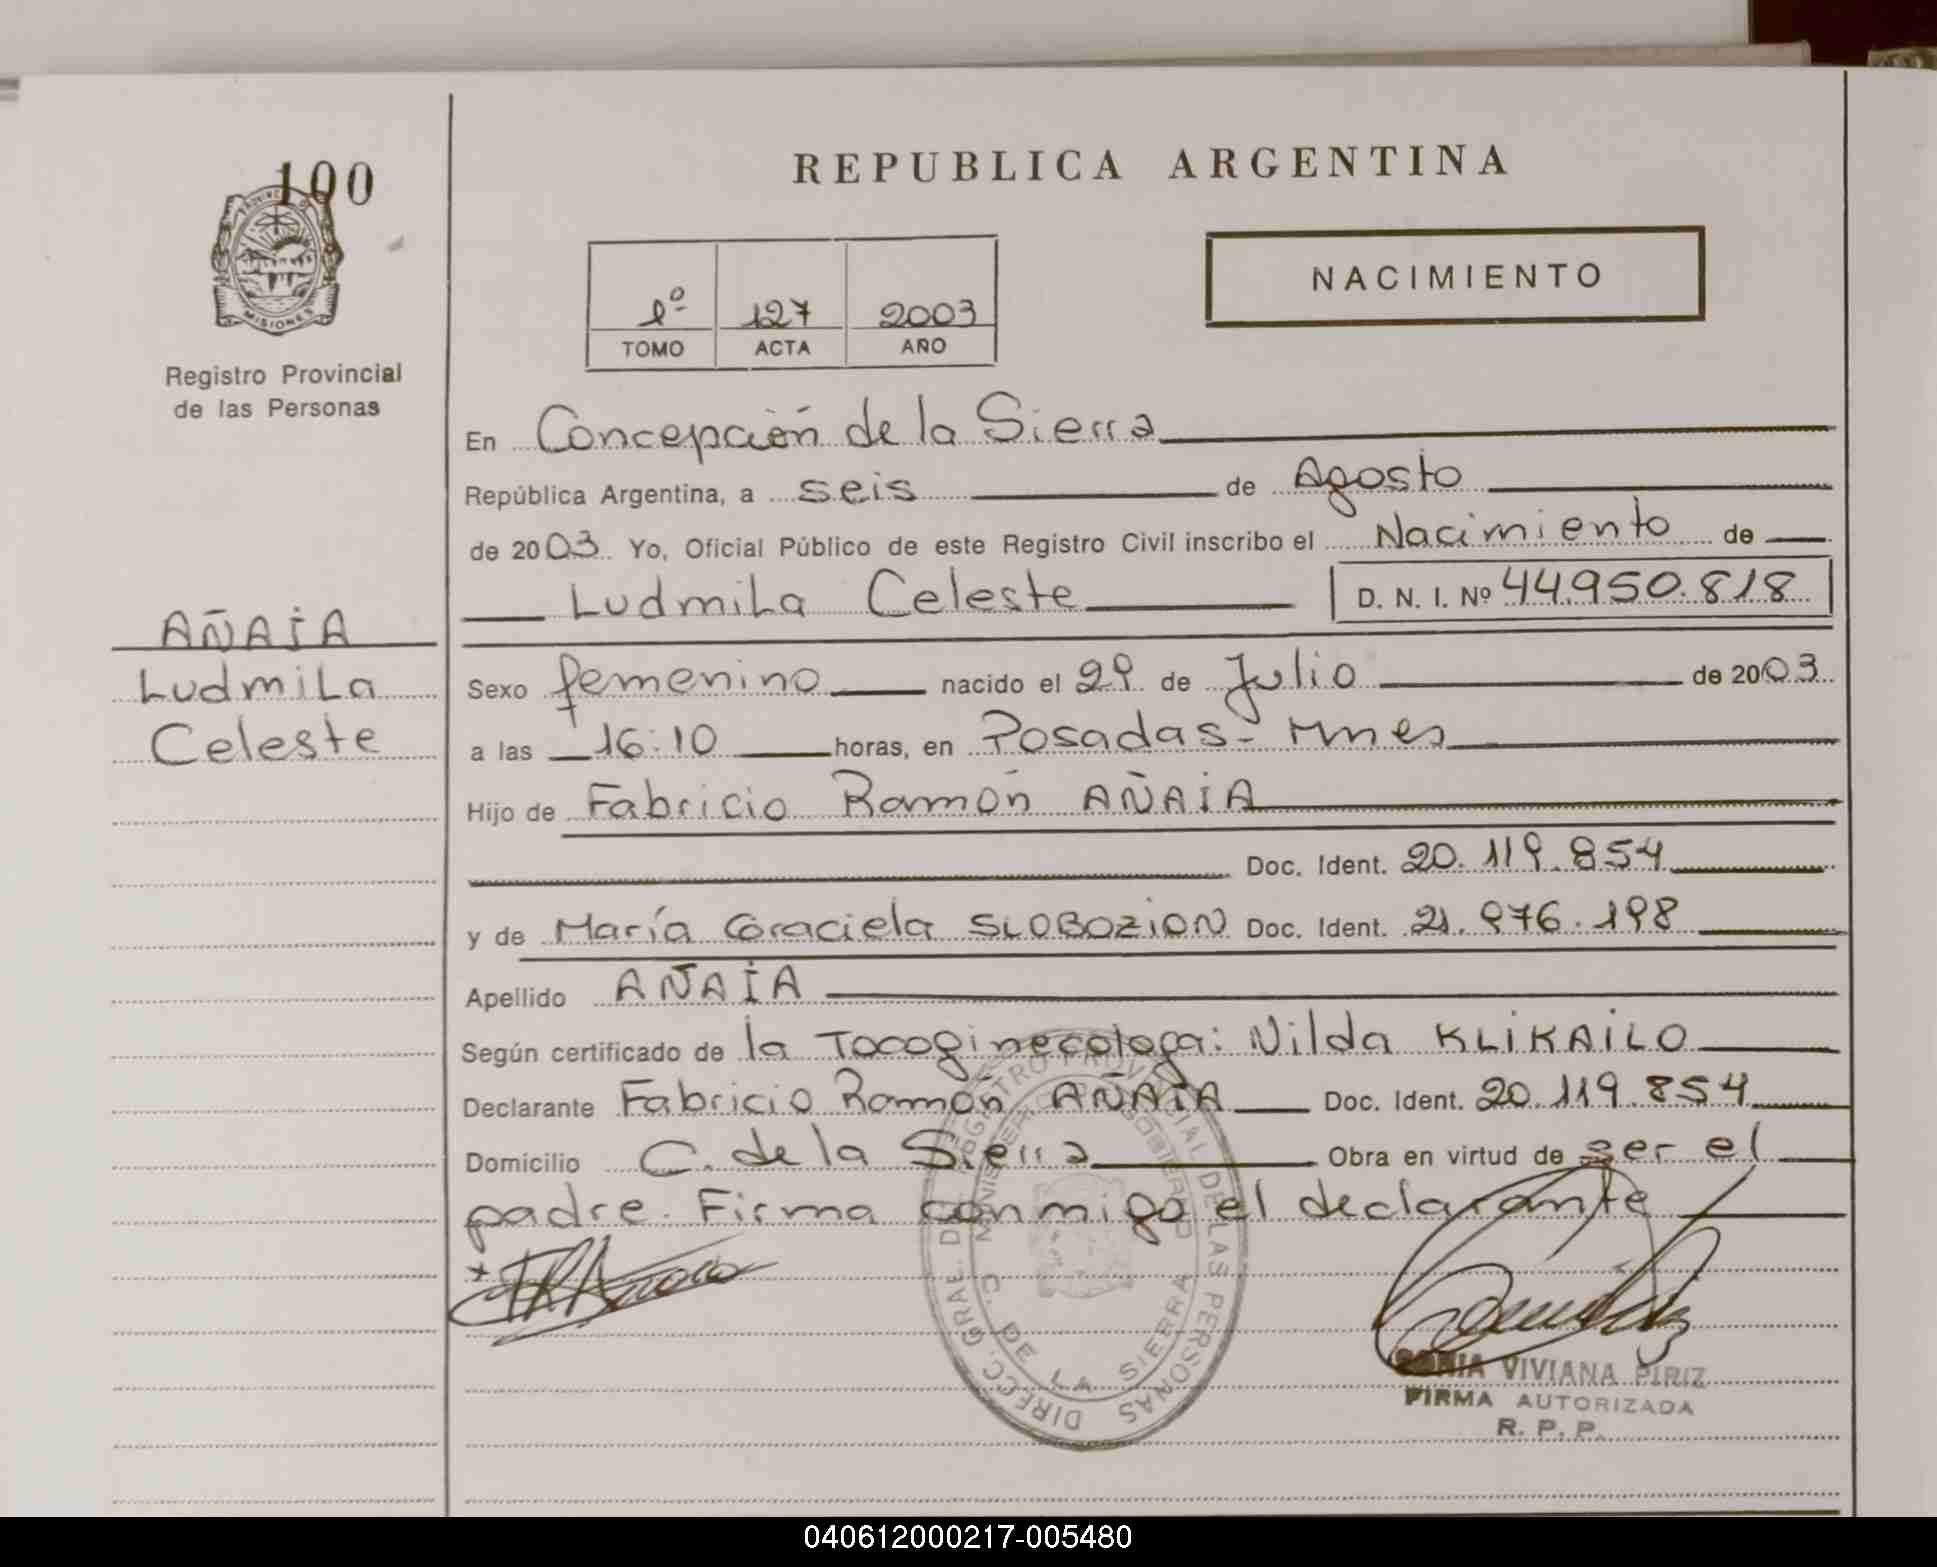 100
MISIONES
Registro Provincial
de las Personas
REPUBLICA ARGENTINA
NACIMIENTO
1º 127 2003
TOMO ACTA AÑO
En Concepción de la Sierra
República Argentina, a seis de Agosto
de 2003 Yo, Oficial Público de este Registro Civil inscribo el Nacimiento de
Ludmila Celeste D. N. I. Nº 44.950.818
AÑAIA
Ludmila
Celeste
Sexo femenino nacido el 29 de Julio de 2003
a las 16:10 horas, en Posadas - Mnes
Hijo de Fabricio Ramón AÑAIA
Doc. Ident. 20.119.854
y de María Graciela SLOBOZION Doc. Ident. 21.976.198
Apellido AÑAIA
Según certificado de la Tocoginecologa: Nilda KLIKAILO
Declarante Fabricio Ramón AÑAIA Doc. Ident. 20.119.854
Domicilio C. de la Sierra Obra en virtud de ser el
padre. Firma conmigo el declarante
DIRECC. GRAL. DEL REGISTRO PROVINCIAL DE LAS PERSONAS
C. DE LA SIERRA
SONIA VIVIANA PIRIZ
FIRMA AUTORIZADA
R. P. P.
040612000217-005480